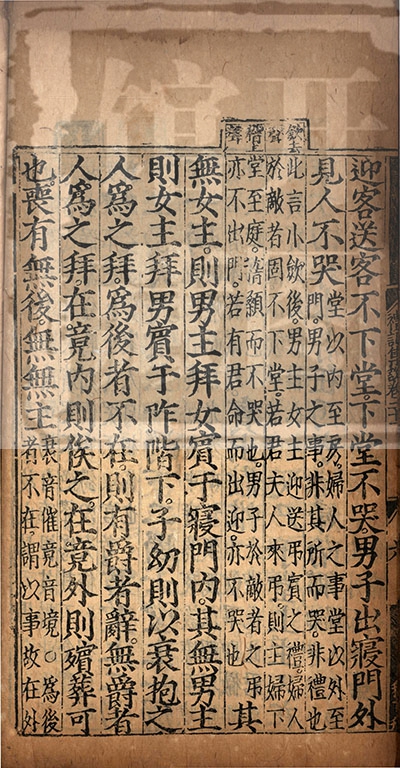 歛去
聲
稽上
聲
迎客送客不下堂。下堂不哭。男子出寢門外
見人不哭。堂以內至房。婦人之事。堂以外至
門。男子之事。非其所而哭。非禮也
此言小歛後。男主女主迎送弔賓之禮。婦人
於敵者固不下堂。若君夫人來弔。則主婦下
堂至庭。稽顙而不哭也。男子於敵者之弔
亦不出門。若有君命而出迎。亦不哭也 其
無女主。則男主拜女賓于寢門內。其無男主
則女主拜男賓于阼階下。子幼則以衰抱之
人爲之拜。爲後者不在。則有爵者辭。無爵者
人爲之拜。在竟內則俟之。在竟外則殯葬可
也。喪有無後無無主 衰音催竟音境。○爲後
者不在。謂以事故在外